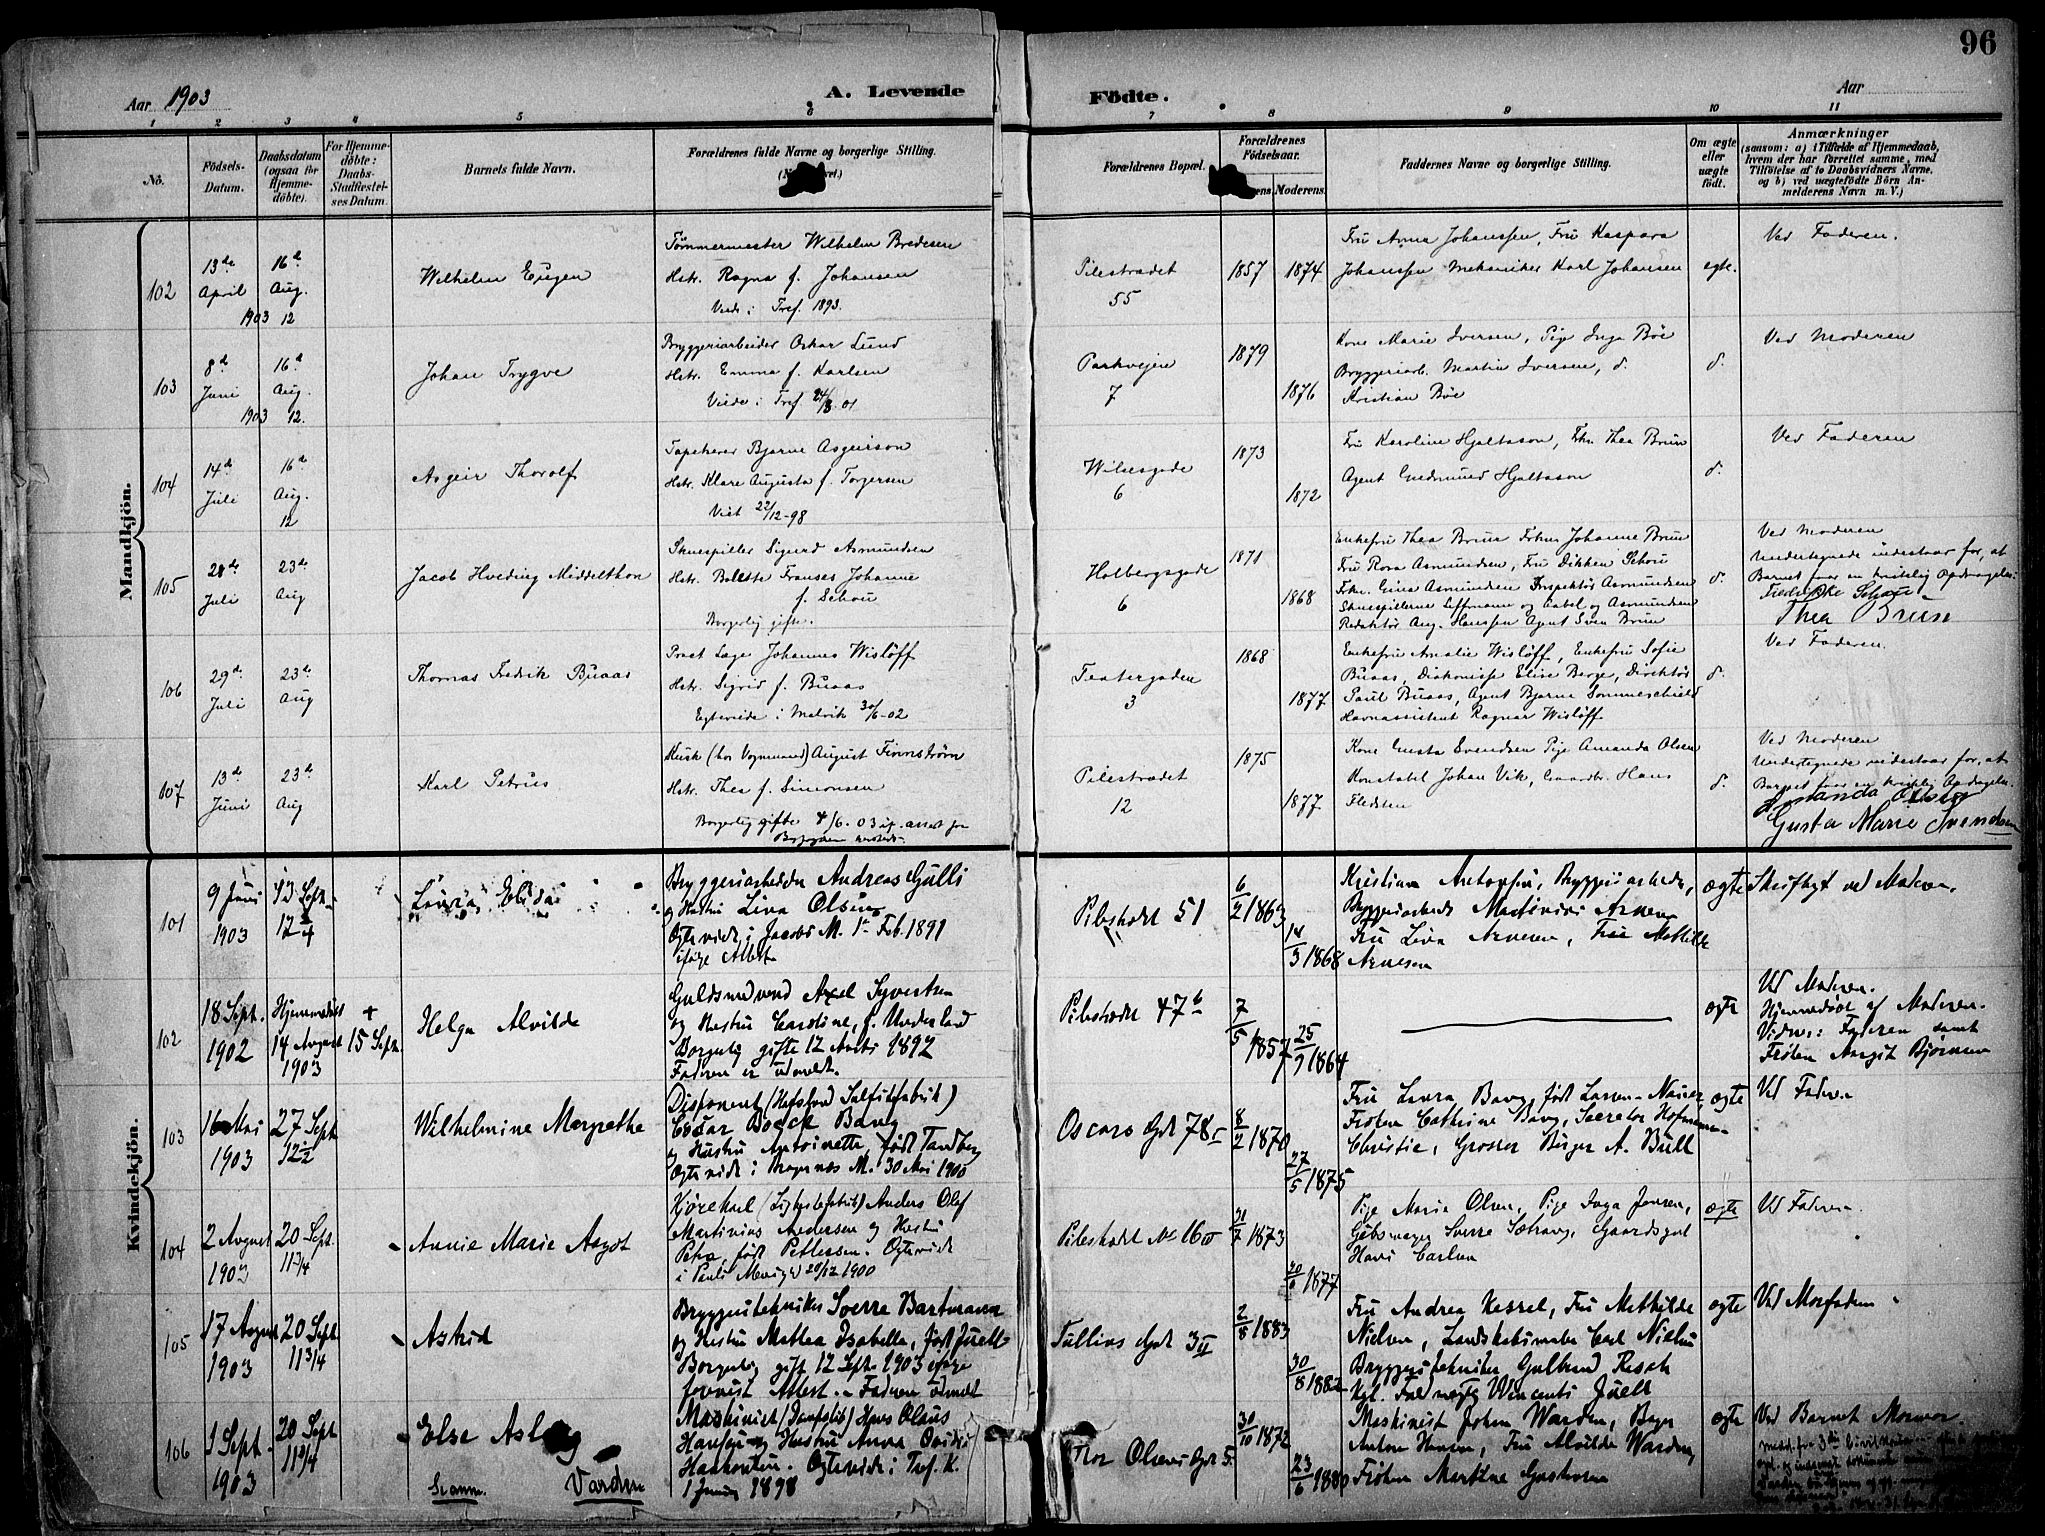 96
Aar 1903
A. Levende
Födte.
Aar
1 2 3 4 5 6 7 8 9 10 11
No.
Födsels-
Datum.
Daabsdatum
(ogsaa for
Hjemme-
döbte).
For Hjemme-
döbte:
Daabs-
Stadfæstel-
ses Datum.
Barnets fulde Navn.
Forældrenes fulde Navne og borgerlige Stilling.
Forældrenes Bopæl.
Forældrenes
Födselsaar.
Moderens.
Faddernes Navne og borgerlige Stilling.
Om ægte
eller
uægte
födt.
Anmærkninger
(saasom: a) i Tilfælde af Hjemmedaab,
hvem der har forrettet samme, med
Tilföielse af to Daabsvidners Navne,
og b) ved uægtefödte Börn An-
melderens Navn m. V.)
Mandkjön.
102
13de
April
1903
16de
Aug.
12
Wilhelm Eugen
Tømmermester Wilhelm Bredesen
Hstr. Ragna f. Johansen
Viede i Tref. 1893.
Pilestrædet
55
1857
1874
Fru Anna Johanssen, Fru Kaspara
Johanssen Mekaniker Karl Johansen
egte.
Ved Faderen.
103
8de
Juni
1903
16de
Aug.
12.
Johan Trygve
Bryggeriarbeider Oskar Lund
Hstr. Emma f. Karlsen
Viede i Tref 24/8 01
Parkveien
7
1879
1876
Kone Marie Iversen, Pige Inga Böe
Bryggeriarb. Martin Iversen, d.
Kristian Böe
d.
Ved Moderen
104
14de
Juli
16de
Aug.
12
Asgeir Thorolf
Tapetserer Bjarne Asgeirson
Hstr. Klara Augusta f. Torgersen
Viet 22/12-98
Wilsesgade
6
1873
1872
Fru Karoline Hjaltason, Frk. Thea Brun
Agent Gudmund Hjaltason
d.
Ved Faderen
105
28de
Juli
23de
Aug
Jacob Hveding Middelthon
Skuespiller Sigurd Asmundsen
Hstr. Bolette Franses Johanne
f. Schou
Borgerlig gifte.
Holbergsgade
6
1871
1868
Enkefru Thea Brun Frkn Johanne Brun
Fru Rosa Asmundsen, Fru Dikken Schou
Frkn. Gina Asmundsen Inspektör Asmundsen
Skuespillerne Leffmann og Aabel og Asmundsen
Redaktör Aug. Hanssen Agent Sven Brun
d.
Ved Moderen
Undertegnede indestaar for, at
Barnet faar en kristelig Opdragelse:
Fredrikke Schou
Thea Brun
106
29de
Juli
23de
Aug
Thomas Fredrik Buaas
Pract Læge Johannes Wislöff
Hstr. Sigrid f. Buaas
Egteviede i Malvik 30/6-02
Teatergaden
3
1868
1877
Enkefru Amalie Wislöff, Enkefru Sofie
Buaas, Diakonisse Elise Berge, Direktör
Paul Buaas, Agent Bjarne Sommerschield
Havnassistent Ragnar Wislöff
d.
Ved Faderen.
107
13de
Juni
23de
Aug
Karl Petrus
Kusk (hos Vognmand) August Finnström
Hstr. Thea f. Simonsen
Borgerlig gifte 4/6. 03 if. attest fra
Byfogden herstedet
Pilestrædet
12
1875
1877
Kone Gusta Svendsen Pige Amanda Olsen
Konstabel Johan Vik, Gaardbr. Hans
Fledsten
d.
Ved Moderen
Undertegnede indestaar for, at
Barnet faar en kristelig Opdragelse.
Amanda Olsen
Gusta Marie Svendsen
Kvindekjön.
101
9 Juni
1903
13 Sept.
12 1/4
Laura Elida
Bryggeriarbeider Andreas Gulli
og Hustru Lina Olsen
Ægteviede i Jacobs M. 1ste Feb. 1891
ifølge Attest
Pilestrædt 51
6/2 1863
14/3 1868
Kristian Antonsen, Bryggeriarbeider,
Bryggeriarbeider Martinius Arnesen
Fru Lina Arnesen, Fru Mathilde
Arnesen
ægte
Skriftligt ved Moderen.
102
18 Sept.
1902
Hjemmedøbt
14 August
1903
+
15 Sept.
Helga Alvilde
Guldsmedsvend Axel Syvertsen
og Hustru Caroline, f. Underland
Borgerlig gifte 12 Marts 1892
Faderen er udmeldt.
Pilestrædt 47b
7/5 1857
25/9 1864
ægte
Ved Moderen.
Hjemmedøbt af Moderen.
Vidner: Faderen samt
Frøken Margit Bjørnsen
103
16 Mai
1903
27 Sept
12 1/2
Wilhelmine Margrethe
Disponent (Hafslund Sulfitfabrik)
Einar Boeck Bang
og Hustru Antoinette, født Tandberg
Ægteviede i Bragernæs M. 30 Mai 1900
Oscars Gd 78 I
8/2 1870
27/5 1875
Fru Laura Bang, født Larsen-Naur,
Frøken Cathrine Bang, Secretær Hofmann-
Christie, Grosser Birger A. Bull
ægte
Ved Faderen
104
2 August
1903
20 Sept.
11 3/4
Annie Marie Aagot
Kjørekarl (Ligkistefabrik) Anders Olaf
Martinius Andersen og Hustru
Petra født Pettersen. Ægteviede
i Pauli Menighed 20/12 1900
Pilestrædt No 16 III
31/7 1873
20/6 1877
Pige Maria Olsen, Pige Inga Jensen,
Gibsmager Sverre Sætrang, Gaardsgut
Hans Carlsen
ægte
Ved Faderen.
105
17 August
1903
20 Sept
11 3/4
Astrid
Bryggeritekniker Sverre Bartmann
og Hustru Mathea Isabella, født Juell
Borgerlig gift 12 Sept. 1903 ifølge
forevist Attest. Faderen udmeldt
Tullins Gd. 3 II
2/8 1883
30/8 1882
Fru Andrea Kessel, Fru Mathilde
Nielsen, Landskabsmaler Carl Nielsen
Bryggeritekniker Gulbrand Resch
Kgl. Fuldmægtig Wincents Juell
ægte
Ved Morfaderen
106
1 Sept.
1903
20 Sept
11 3/4
Else Aslaug
Svanm.
Varden
Maskinist (Dampskib) Hans Olaus
Hansen og Hustru Anna Ovidia
Haakonsen. Ægteviede i Tref. K.
1 Januar 1898
Thor Olsens Gd 5
30/10 1872
23/6 1880
Maskinist Johan Warden, Bager
Anton Hansen, Fru Alvilde Warden,
Frøken Martine Gustavsen
ægte
Ved Barnets Mormor.